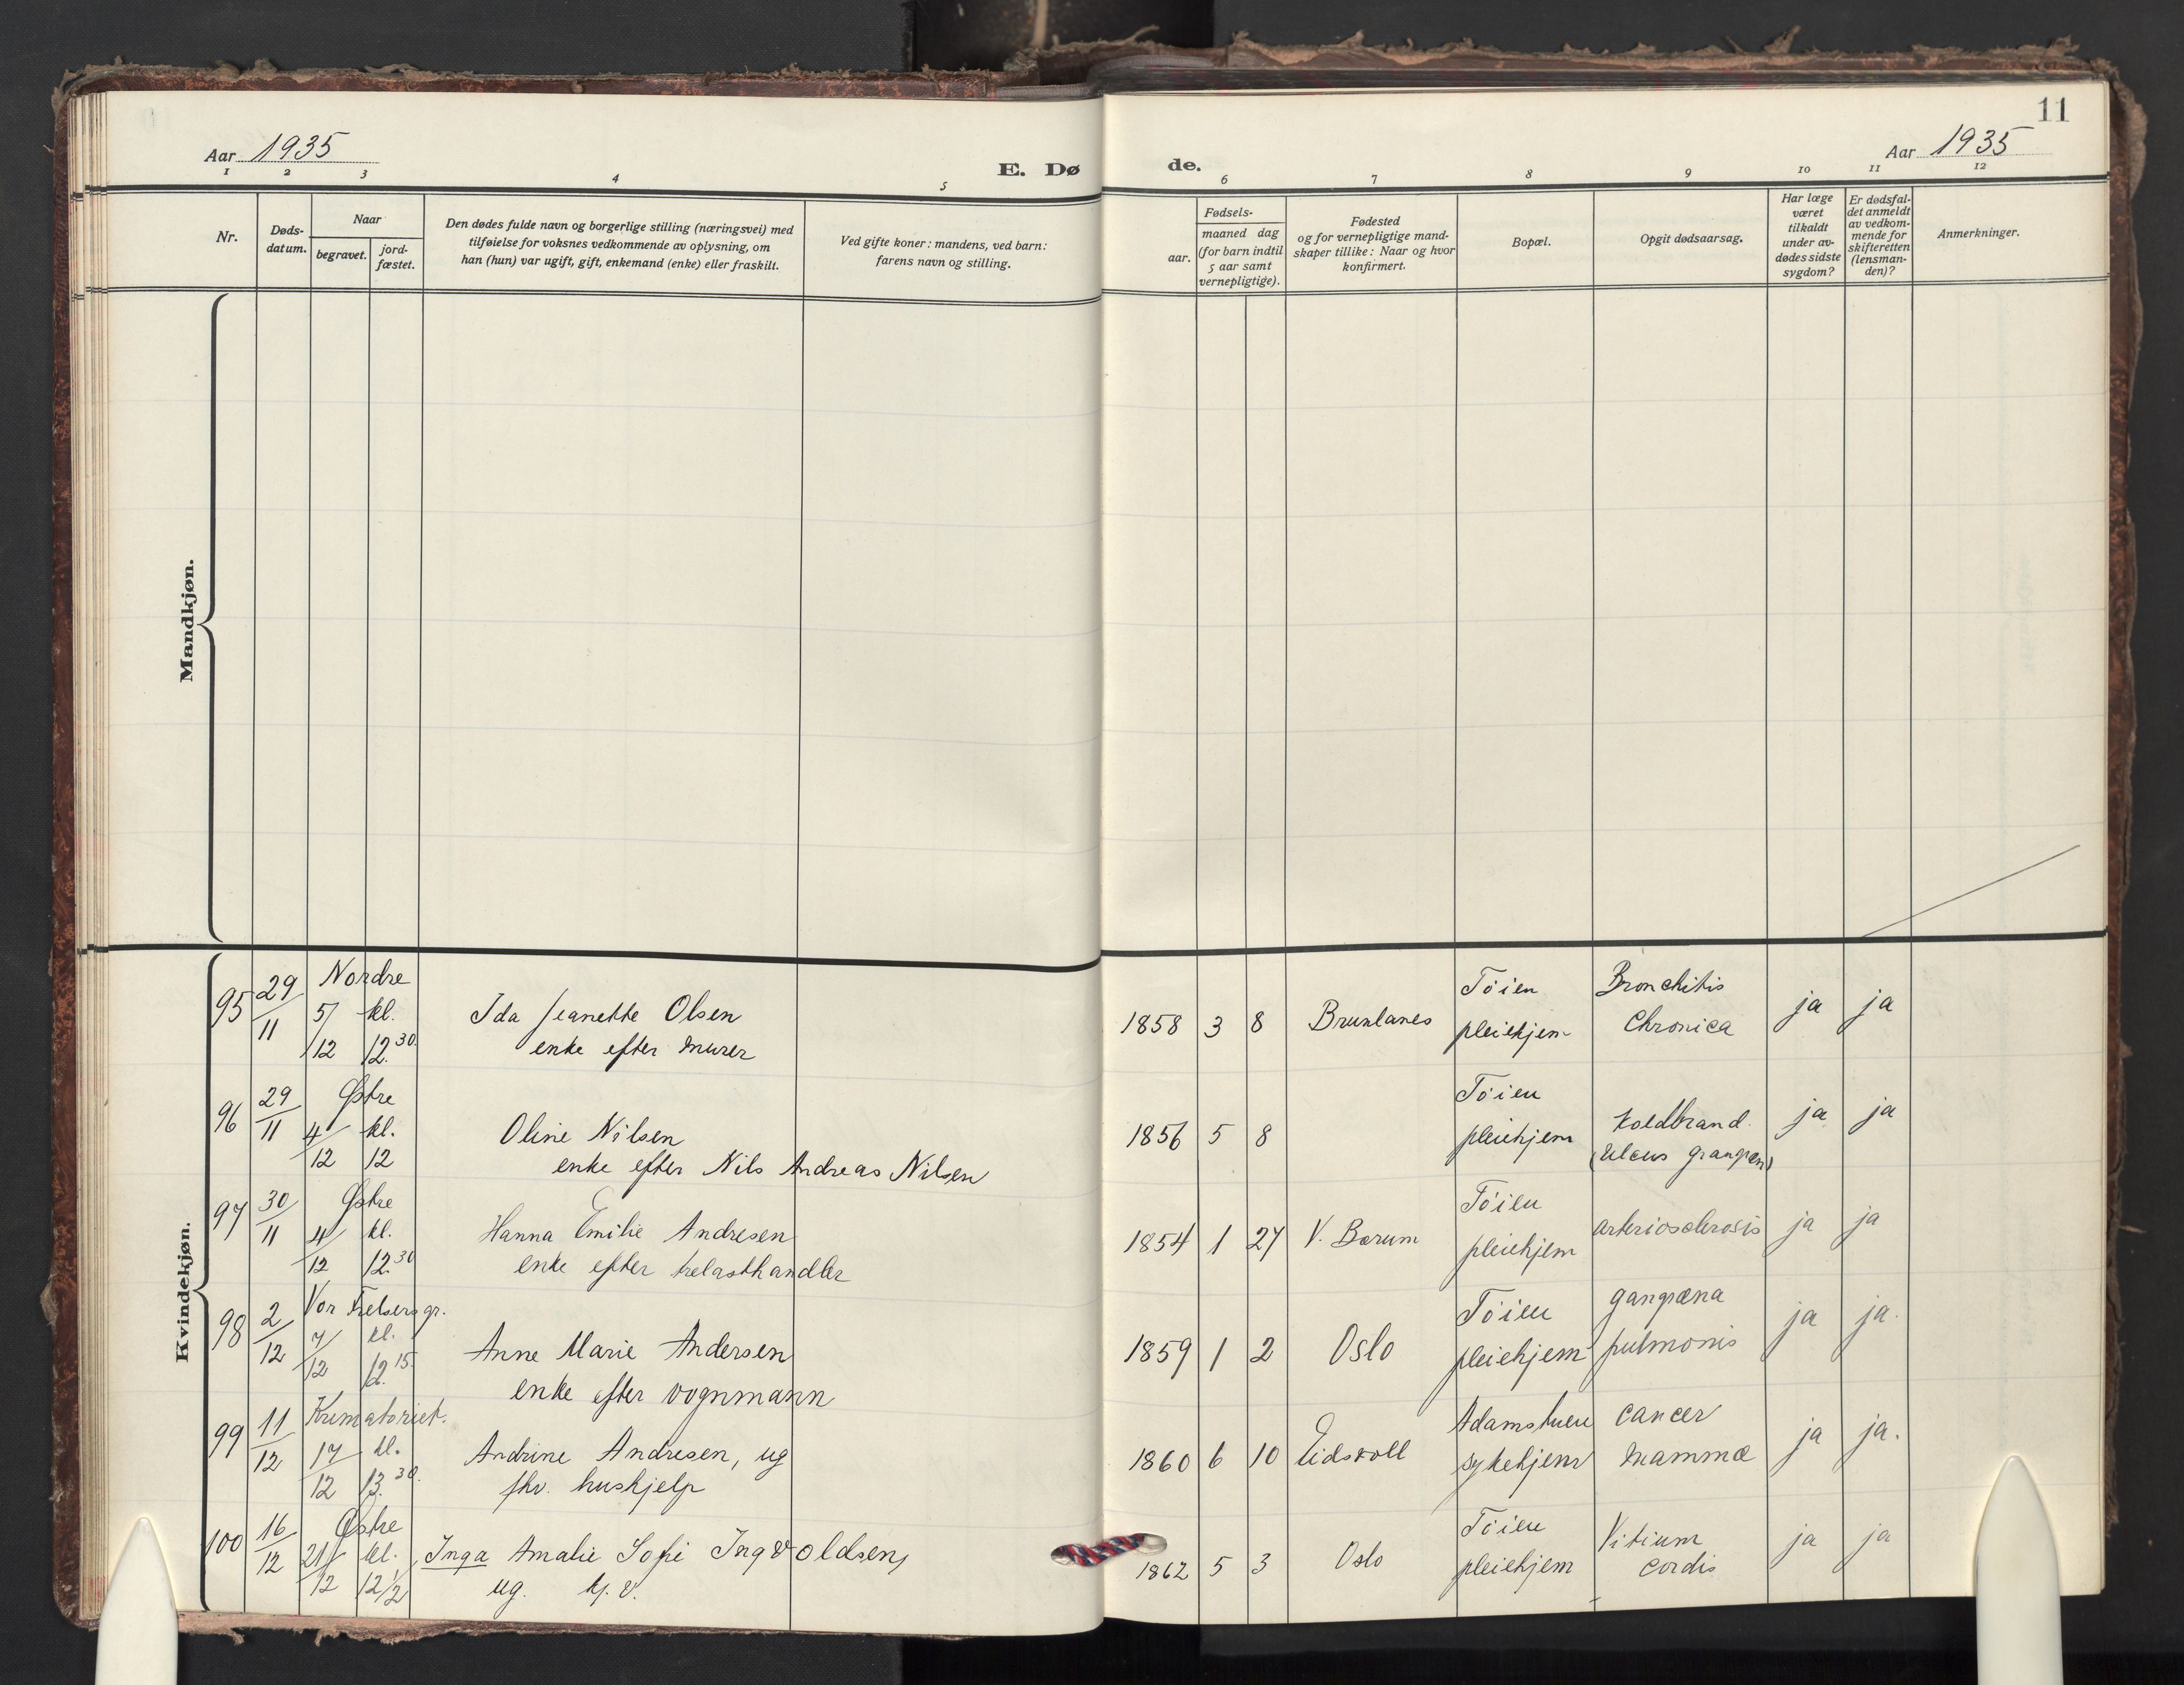 11
Aar 1935
E. Døde.
Aar 1935
1 2 3 4 5 6 7 8 9 10 11 12
Nr.
Døds-
datum.
Naar
begravet.
jord-
fæstet.
Den dødes fulde navn og borgerlige stilling (næringsvei) med
tilføielse for voksnes vedkommende av oplysning, om
han (hun) var ugift, gift, enkemand (enke) eller fraskilt.
Ved gifte koner: mandens, ved barn:
farens navn og stilling.
Fødsels-
aar.
maaned dag
(for barn indtil
5 aar samt
vernepligtige).
Fødested
og for vernepligtige mand-
skaper tillike: Naar og hvor
konfirmert.
Bopæl.
Opgit dødsaarsag.
Har læge
været
tilkaldt
under av-
dødes sidste
sygdom?
Er dødsfal-
det anmeldt
av vedkom-
mende for
skifteretten
(lensman-
den)?
Anmerkninger.
Mandkjøn.
Kvindekjøn.
95 29/11 Nordre 5/12 kl. 12.30
Ida Jeanette Olsen
enke efter murer
1858 3 8 Brunlanes
Töien
pleiehjem
Bronchitis
Chronica
ja ja
96 29/11 Østre 4/12 kl. 12
Oline Nilsen
enke efter Nils Andreas Nilsen
1856 5 8
Töien
pleiehjem
Koldbrand.
(Ulcus grangræn)
ja ja
97 30/11 Østre 4/12 kl. 12.30
Hanna Emilie Andresen
enke efter trelasthandler
1854 1 27 V. Bærum
Töien
pleiehjem
arteriosclerosis
ja ja
98 2/12 Vor Frelsers gr. 7/12 kl. 12.15
Anne Marie Andersen
enke efter vognmann
1859 1 2 Oslo
Töien
pleiehjem
gangræna
pulmonis
ja ja.
99 11/12 Krematoriet. 17/12 kl. 13.30
Andrine Andresen, ug
fhv. hushjelp
1860 6 10 Eidsvoll
Adamstuen
sykehjem
cancer
mammæ
ja ja.
100 16/12 Østre 21/12 kl. 12 1/2
Inga Amalie Sofie Ingvoldsen,
ug.
1862 5 3 Oslo
Töien
pleiehjem
Vitium
cordis
ja ja